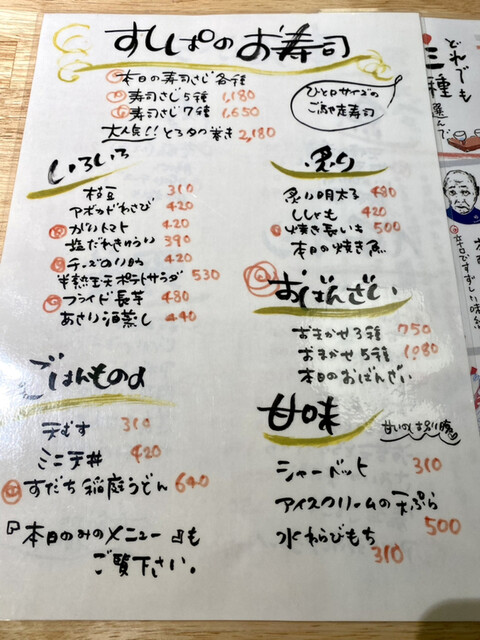 すしぱのお寿司
本日の寿司さじ各種
寿司さじ5種 1,180
寿司さじ7種 1,650
大人気!! とろタク巻き 2,180
ひと口サイズの
ご馳走寿司
いろいろ
枝豆 310
アボカドわさび 420
ガリトマト 420
塩だれきゅうり 390
チーズの 420
半熟玉天ポテトサラダ 530
フライド長芋 480
あさり酒蒸し 440
炙り
炙り明太子 480
ししゃも 420
焼き長いも 500
本日の焼き魚
おばんざい
おまかせ3種 750
おまかせ5種 1,080
本日のおばんざい
ごはんもの
天むす 310
ミニ天丼 420
すだち稲庭うどん 640
『本日のみのメニュー』も
ご覧下さい。
甘味
甘いのは別腹
シャーベット 310
アイスクリームの天ぷら
500
水わらびもち
310
どれでも
三種
選んで
辛口ですずしい味